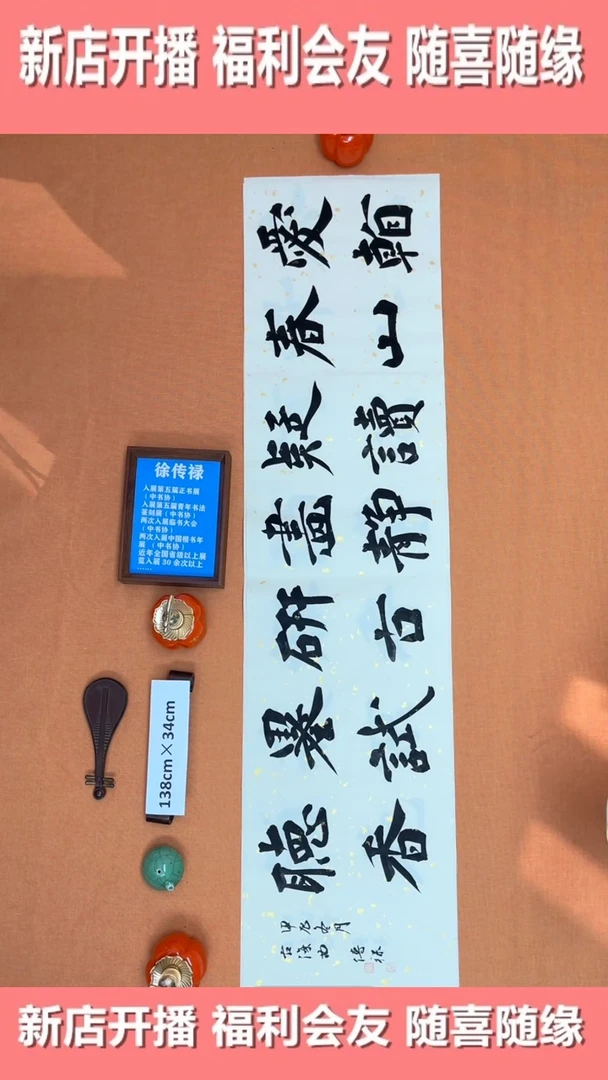 新店开播 福利会友 随喜随缘
愛看
春山
疑讀
畫靜
研古
墨試
聽香
甲辰冬月
傳祿
徐传禄
入展第五届正书展
（中书协）
入展第五届青年书法
篆刻展（中书协）
两次入展临书大会
（中书协）
两次入展中国楷书年
展（中书协）
近年全国省级以上展
览入展30余次以上
138cm×34cm
新店开播 福利会友 随喜随缘